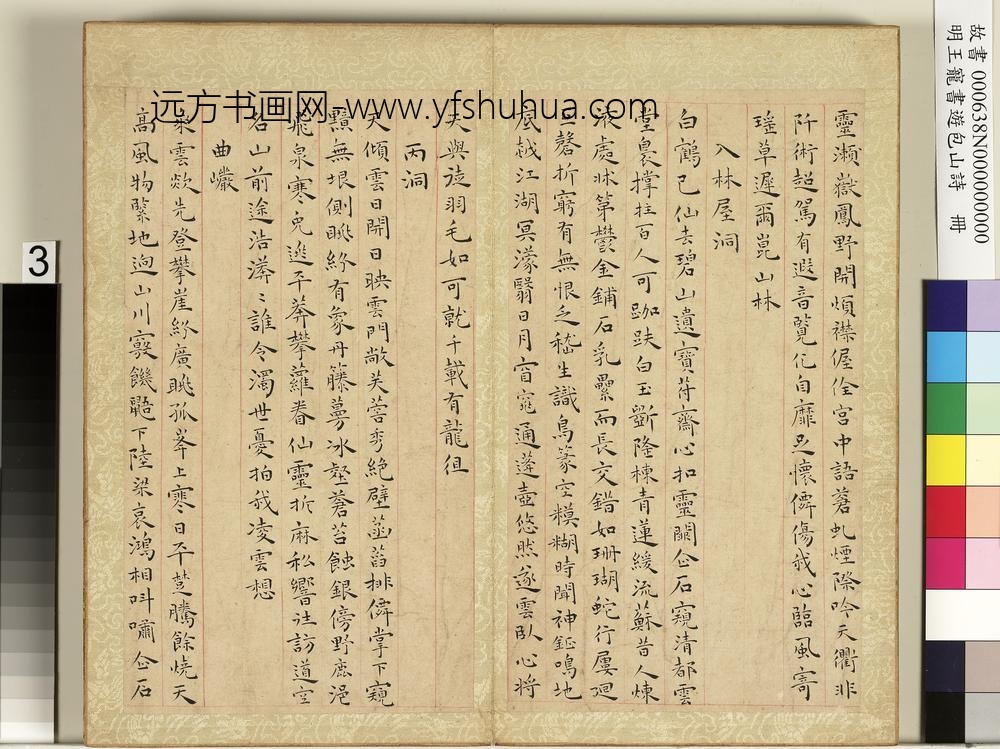 故書 000638N000000000
明王寵書遊包山詩 冊
远方书画网-www.yfshuhua.com
3
靈瀨嶽鳳野開煩襟偓佺宮中語蒼虬煙際吟天衢非
阡術超駕有遐音覽化自靡
懷儕傷我心臨風寄
瑤草遲爾崑山林
入林屋洞
白鶴已仙去碧山遺寶符齋心扣靈關企石窺清都雲
堂裊撐拄百人可跏趺白玉斲隆棟青蓮緩流蘇昔人煉
液處牀第鬱金鋪石乳纍而長交錯如珊瑚蛇行屢迴
磬折窮有無恨乏嵇生識鳥篆空糢糊時聞神鉦鳴地
底越江湖冥濛翳日月窅窕通蓬壺悠然遂雲臥心將
夫與徒羽毛如可就千載有龍徂
丙洞
天傾雲日開日映雲門敞芙蓉秀絕壁菡萏排儕掌下窺
黯無垠側眺紛有象丹籐蔓冰壑蒼苔蝕銀傍野鹿浥
飛泉寒兔逃平莽攀蘿眷仙靈折麻私響往訪道空
名山前途浩漭〻誰令濁世憂拍我凌雲想
曲巖
乘雲欻先登攀崖紛廣眺孤峯上寒日平楚騰餘燒天
高風物緊地迥山川竅饑鼯下陸梁哀鴻相叫嘯企石